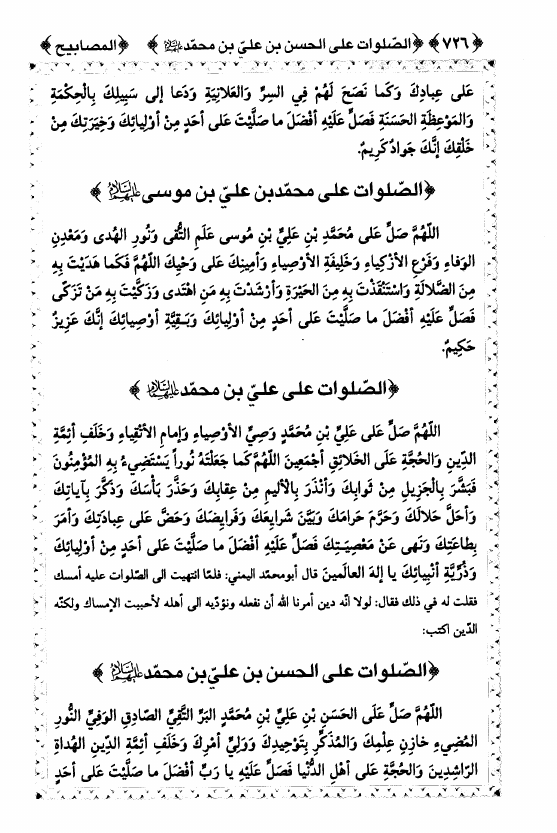 ﴿٧٢٦﴾ ﴿الصّلوات على الحسن بن عليّ بن محمّد عليهما السلام﴾ ﴿المصابيح﴾
عَلى عِبادِكَ وَكَما نَصَحَ لَهُمْ فِي السِرِّ وَالعَلانِيَةِ وَدَعا إلى سَبِيلِكَ بِالْحِكْمَةِ
وَالمَوْعِظَةِ الحَسَنَةِ فَصَلِّ عَلَيْهِ أفْضَلَ ما صَلَّيْتَ عَلى أحَدٍ مِنْ أوْلِيائِكَ وَخِيَرَتِكَ مِنْ
خَلْقِكَ إنَّكَ جَوادٌ كَرِيمٌ.
﴿الصّلوات على محمّدبن عليّ بن موسى عليهما السلام﴾
اللّهُمَّ صَلِّ عَلى مُحَمَّدِ بْنِ عَلِيِّ بْنِ مُوسى عَلَمِ التُّقى وَنُورِ الهُدى وَمَعْدِنِ
الوَفاءِ وَفَرْعِ الأزْكِياءِ وَخَلِيفَةِ الأوْصِياءِ وَأمِينِكَ عَلى وَحْيِكَ اللّهُمَّ فَكَما هَدَيْتَ بِهِ
مِنَ الضَّلالَةِ وَاسْتَنْقَذْتَ بِهِ مِنَ الحَيْرَةِ وَأرْشَدْتَ بِهِ مَنِ اهْتَدى وَزَكَّيْتَ بِهِ مَنْ تَزَكّى
فَصَلِّ عَلَيْهِ أفْضَلَ ما صَلَّيْتَ عَلى أحَدٍ مِنْ أوْلِيائِكَ وَبَقِيَّةِ أوْصِيائِكَ إنَّكَ عَزِيزٌ
حَكِيمٌ.
﴿الصّلوات على عليّ بن محمّد عليهما السلام﴾
اللّهُمَّ صَلِّ عَلى عَلِيِّ بْنِ مُحَمَّدٍ وَصِيِّ الأوْصِياءِ وَإمامِ الأتْقِياءِ وَخَلَفِ أئِمَّةِ
الدِّينِ وَالحُجَّةِ عَلَى الخَلائِقِ أجْمَعِينَ اللّهُمَّ كَما جَعَلْتَهُ نُوراً يَسْتَضِيءُ بِهِ المُؤْمِنُونَ
فَبَشَّرَ بِالْجَزِيلِ مِنْ ثَوابِكَ وَأنْذَرَ بِالْألِيمِ مِنْ عِقابِكَ وَحَذَّرَ بَأْسَكَ وَذَكَّرَ بِآياتِكَ
وَأحَلَّ حَلالَكَ وَحَرَّمَ حَرامَكَ وَبَيَّنَ شَرايِعَكَ وَفَرايِضَكَ وَحَضَّ عَلى عِبادَتِكَ وَأمَرَ
بِطاعَتِكَ وَنَهى عَنْ مَعْصِيَتِكَ فَصَلِّ عَلَيْهِ أفْضَلَ ما صَلَّيْتَ عَلى أحَدٍ مِنْ أوْلِيائِكَ
وَذُرِّيَّةِ أنْبِيائِكَ يا إلهَ العالَمينَ قال أبومحمّد اليمني: فلمّا انتهيت الى الصّلوات عليه أمسك
فقلت له في ذلك فقال: لولا انّه دين أمرنا الله أن نفعله ونؤدّيه الى أهله لأحببت الإمساك ولكنّه
الدّين اكتب:
﴿الصّلوات على الحسن بن عليّ بن محمّد عليهما السلام﴾
اللّهُمَّ صَلِّ عَلَى الحَسَنِ بْنِ عَلِيِّ بْنِ مُحَمَّدٍ البَرِّ التَّقِيِّ الصّادِقِ الوَفِيِّ النُّورِ
المُضِيءِ خازِنِ عِلْمِكَ وَالمُذَكِّرِ بِتَوْحِيدِكَ وَوَلِيِّ أمْرِكَ وَخَلَفِ أئِمَّةِ الدِّينِ الهُداةِ
الرّاشِدِينَ وَالحُجَّةِ عَلى أهْلِ الدُّنْيا فَصَلِّ عَلَيْهِ يا رَبِّ أفْضَلَ ما صَلَّيْتَ عَلى أحَدٍ